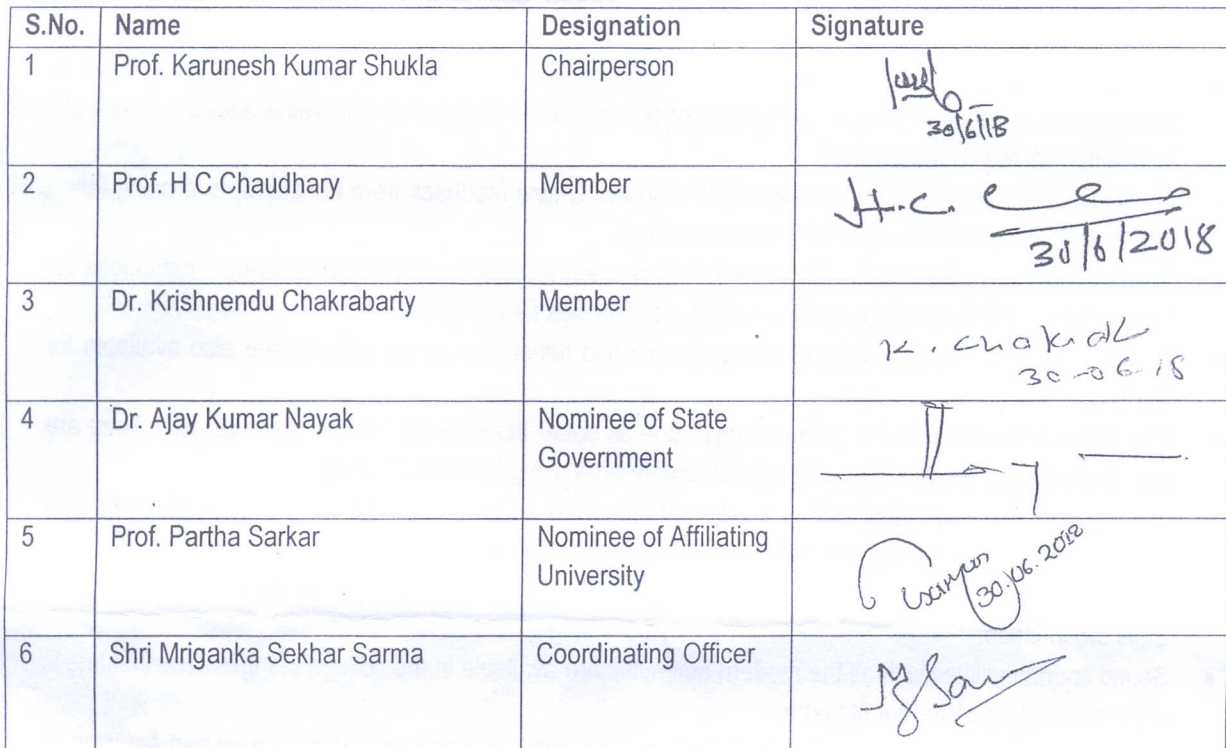 S.No. Name Designation Signature
1 Prof. Karunesh Kumar Shukla Chairperson
30/6/18
2 Prof. H C Chaudhary Member
H.C.
30/6/2018
3 Dr. Krishnendu Chakrabarty Member
K. Chakrab
30-06-18
4 Dr. Ajay Kumar Nayak Nominee of State
Government
5 Prof. Partha Sarkar Nominee of Affiliating
University
30.06.2018
6 Shri Mriganka Sekhar Sarma Coordinating Officer